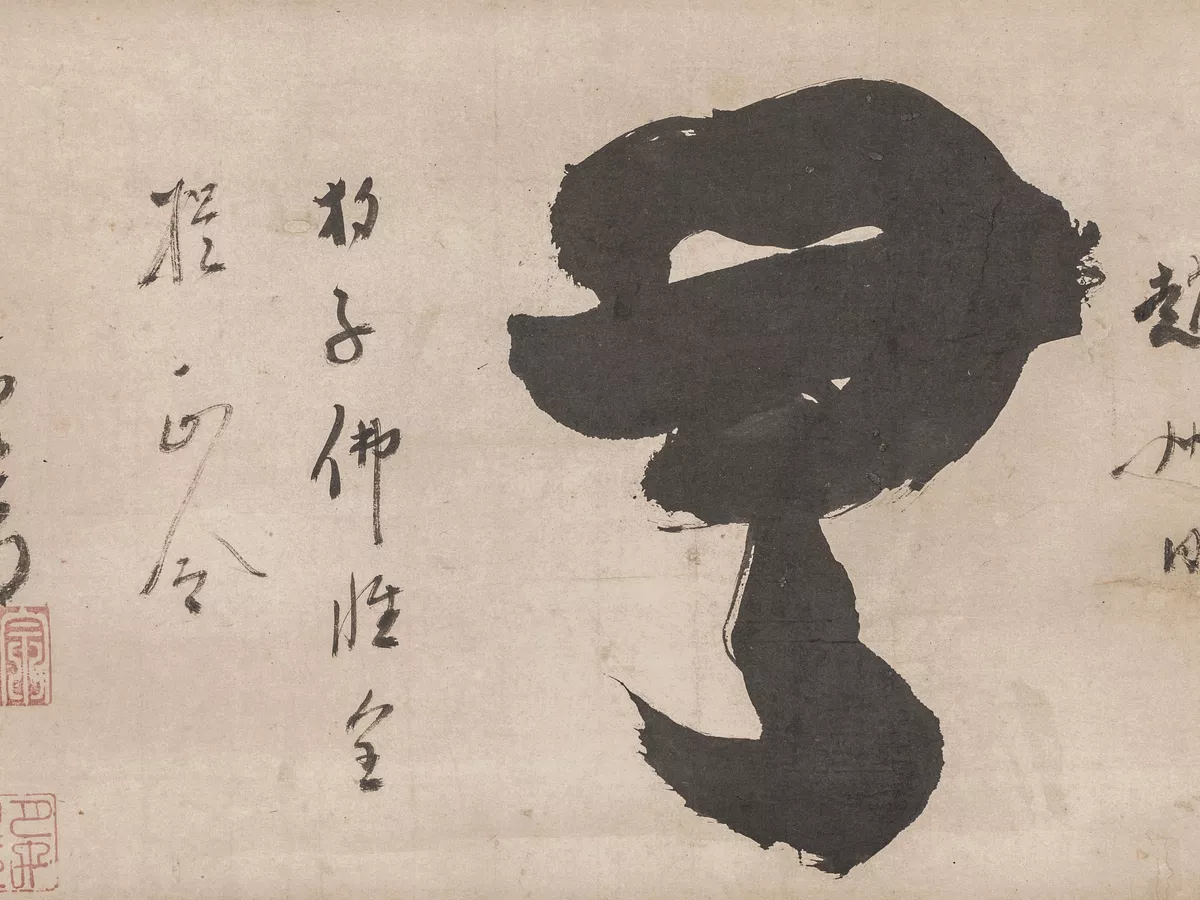 趙州
無
狗子佛性全
提正令